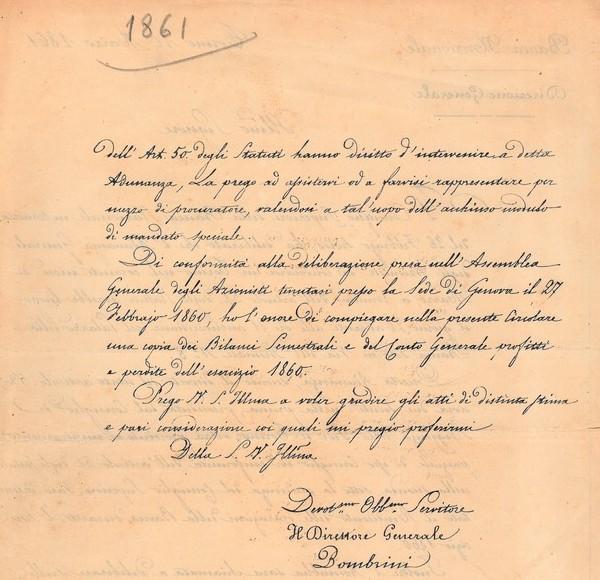 1861
dell' Art. 50. degli Statuti hanno diritto d'intervenire a detta
Adunanza, La prego ad assistervi od a farvisi rappresentare per
mezzo di procuratore, valendosi a tal'uopo dell'anchiuso modulo
di mandato speciale.
Di conformità alla deliberazione presa nell'Assemblea
Generale degli Azionisti tenutasi presso la Sede di Genova il 27
Febbrajo 1860, ho l'onore di compiegare nella presente Circolare
una copia dei Bilanci Semestrali e del Conto Generale profitti
e perdite dell'esercizio 1860.
Prego V. S. Illma a voler gradire gli atti di distinta stima
e pari considerazione coi quali mi pregio proferirmi
Della S. V. Illma
Devotmo Obbmo Servitore
Il Direttore Generale
Bombrini